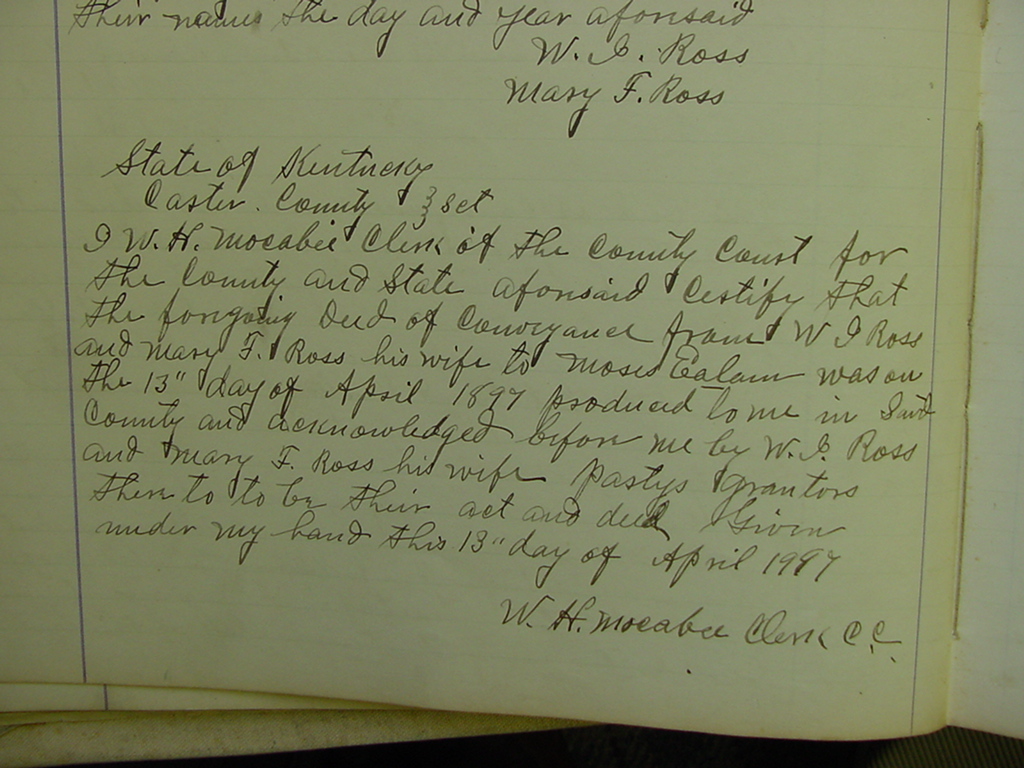 their names the day and year aforisaid
W. I. Ross
Mary F. Ross
State of Kentucky
Carter County } Sct
I W. H. Mocabee Clerk of the County Court for
the County and State aforisaid Certify that
the forgoing Deed of Conveyance from W I Ross
and Mary F. Ross his wife to Moses Ealam was on
the 13" day of April 1897 produced to me in Said
County and acknowledged before me by W. I. Ross
and Mary F. Ross his wife partys grantors
there to to be their act and deed Given
under my hand this 13" day of April 1997
W. H. Mocabee Clerk C. C.